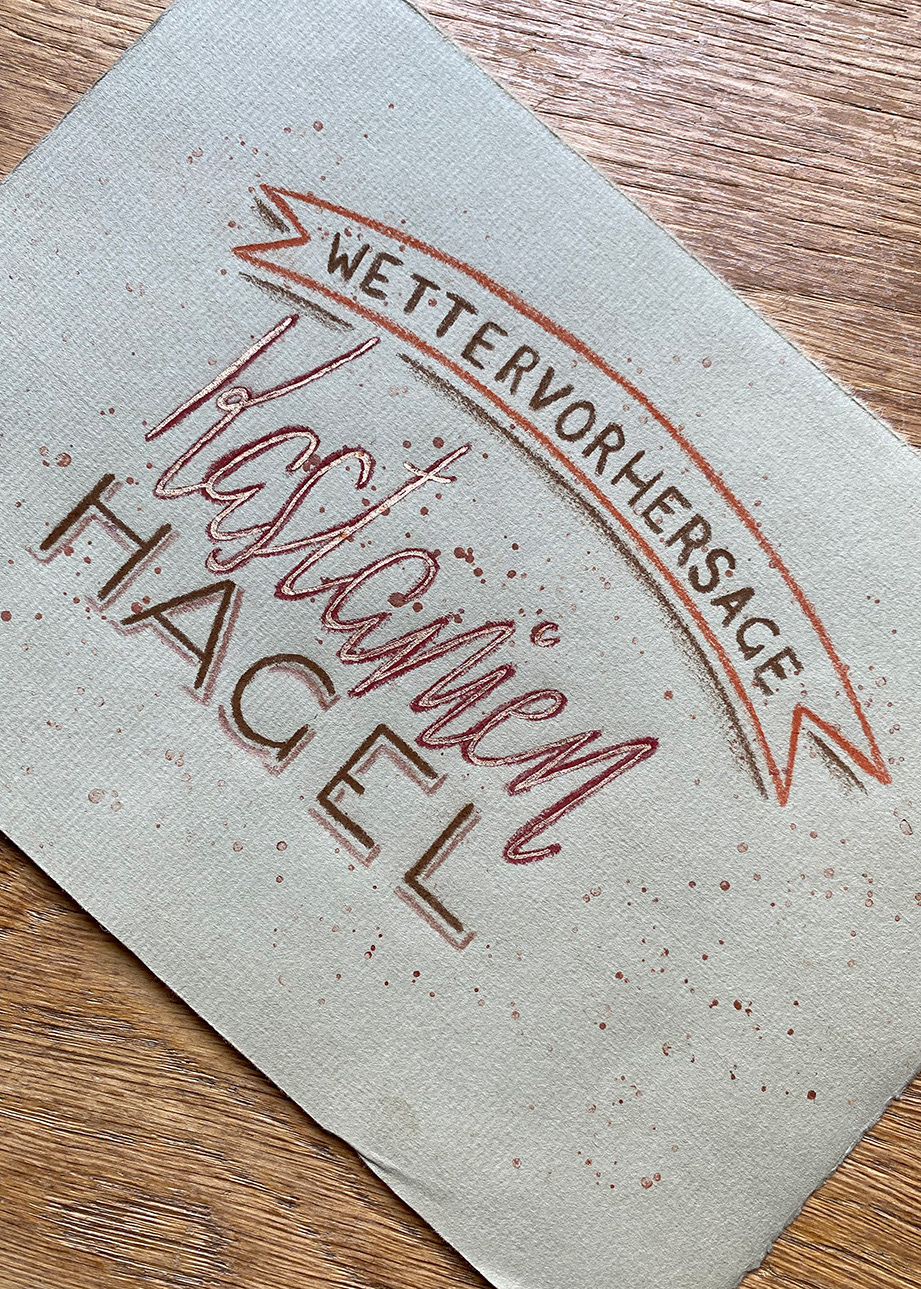 WETTERVORHERSAGE
Kastanien
HAGEL